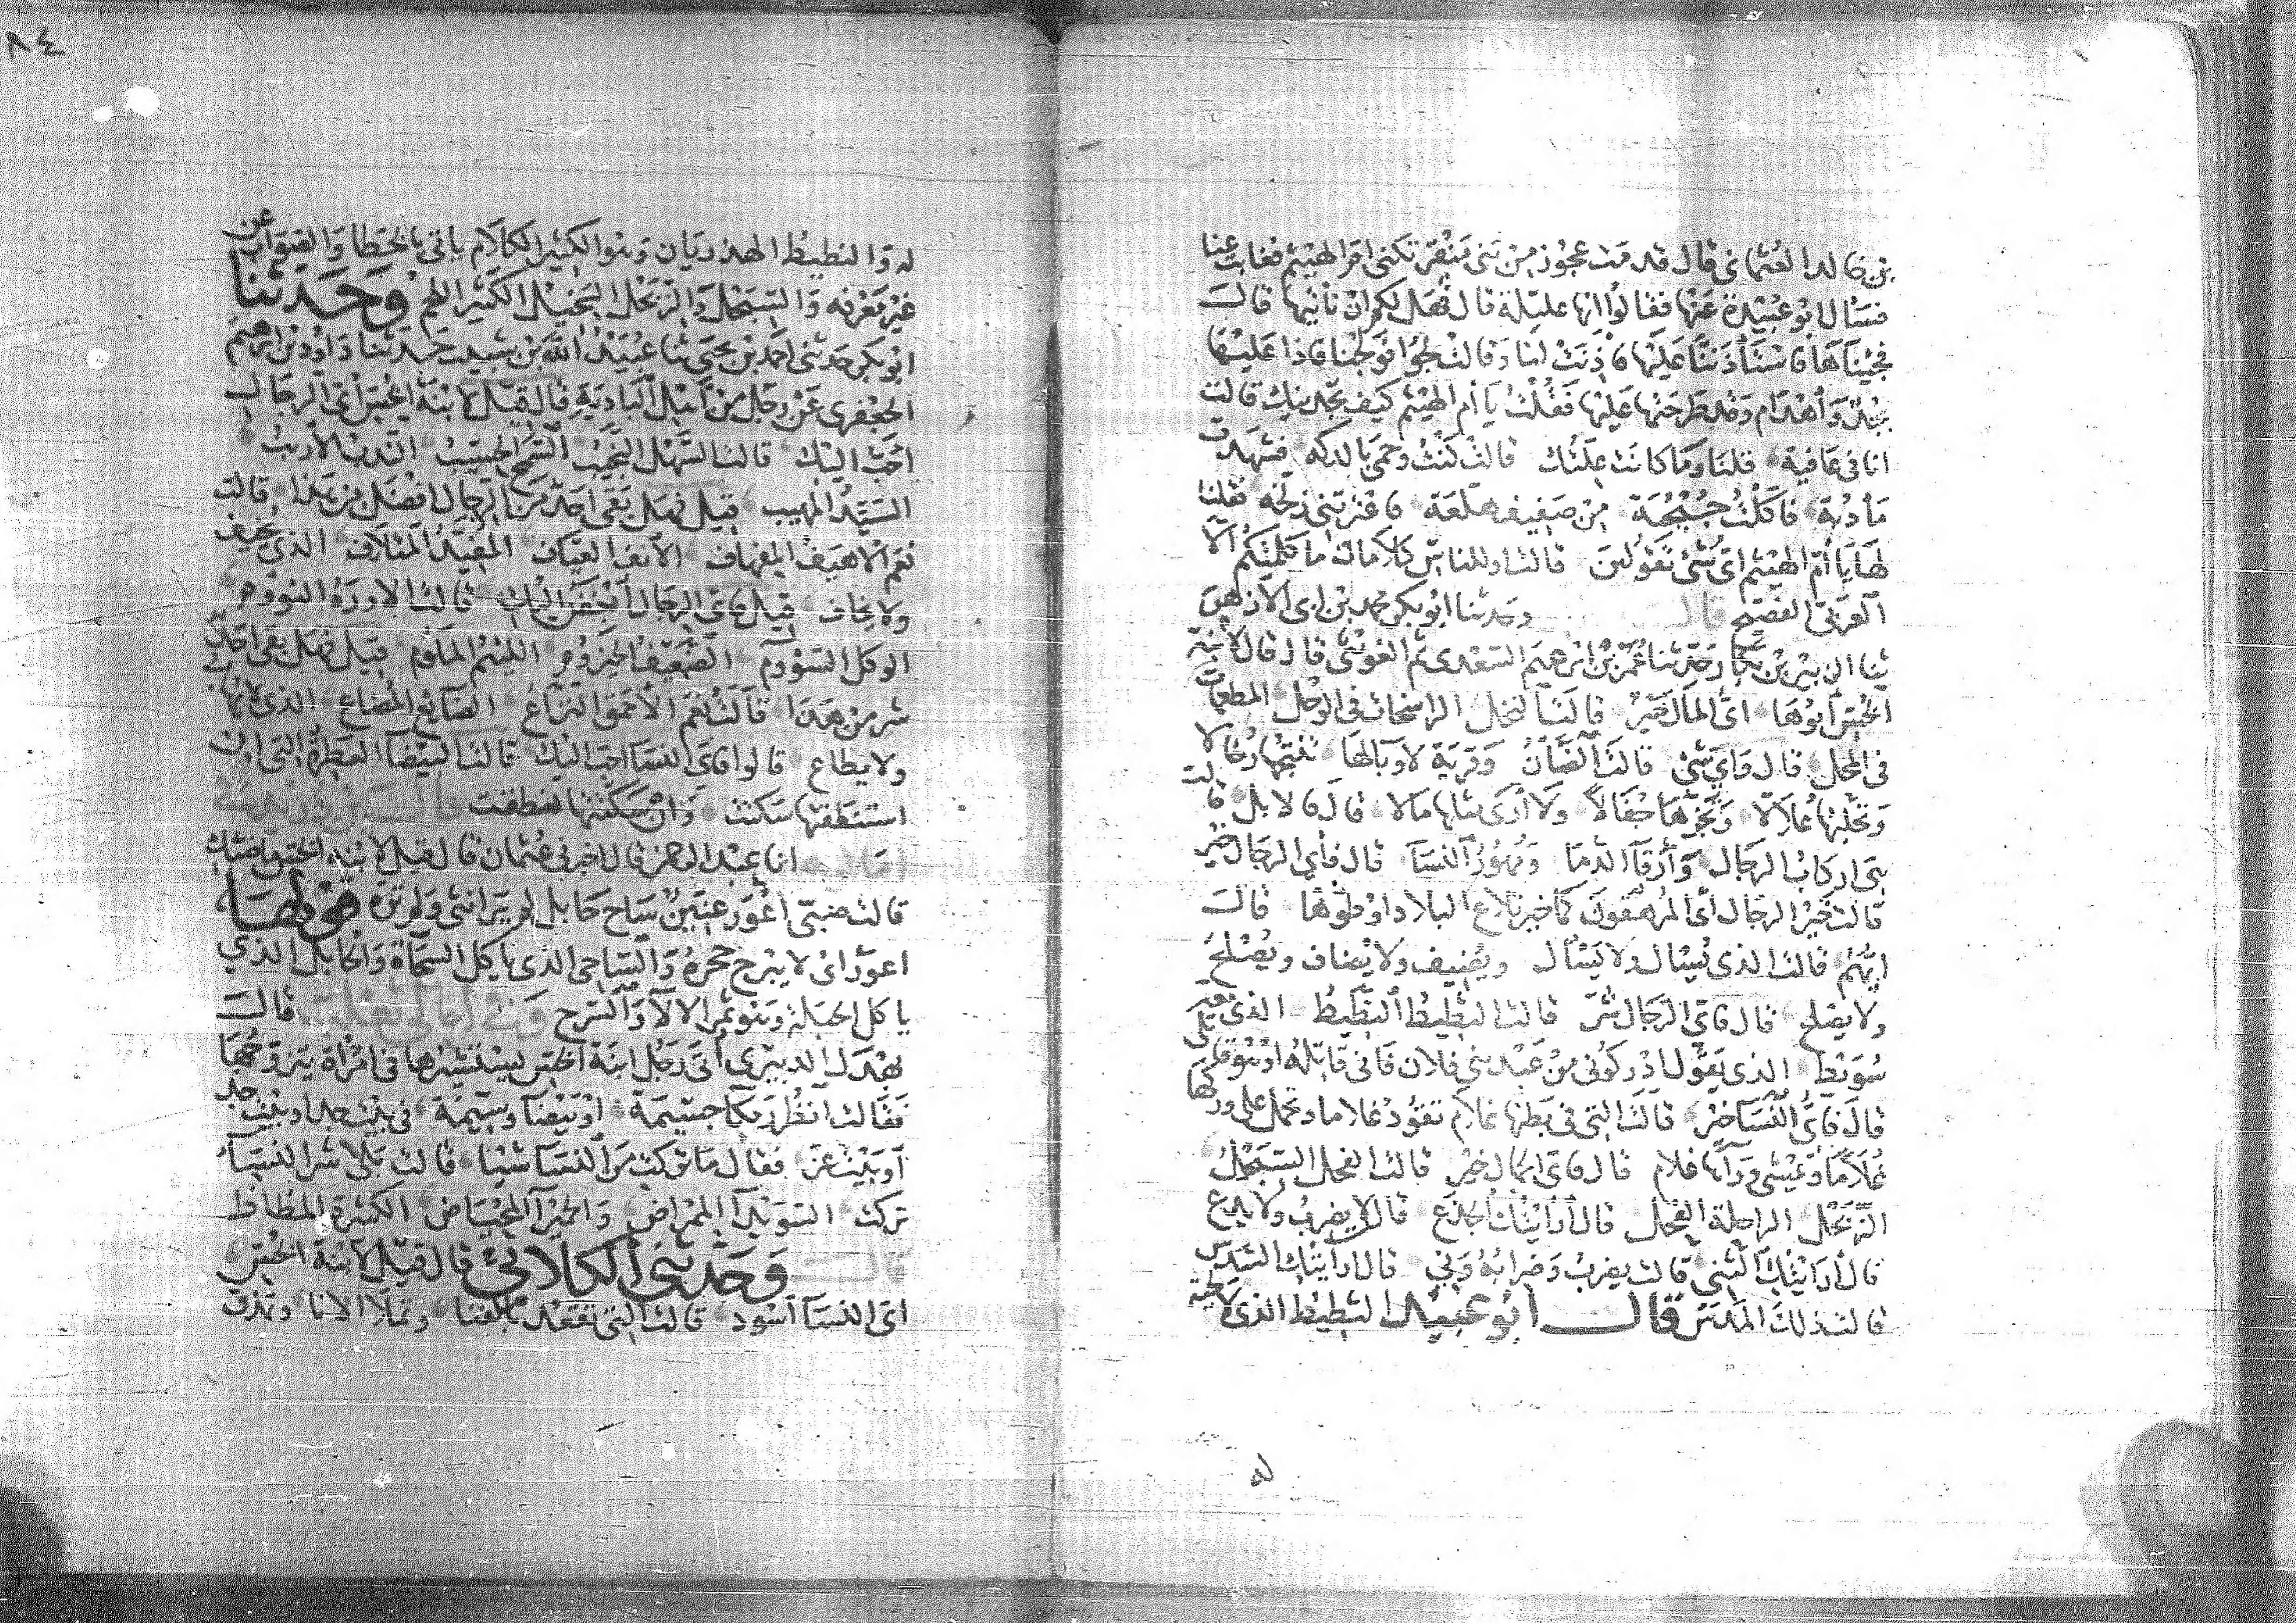 بن خالد العثماني قال قدمت عجوز من بني منقر تكنى ام الهيثم فغابت عنا
فسال ابو عبيدة عنها فقالوا انها عليلة قال فهل لكم ان ناتيها قالت
فجيناها فاستاذننا عليها فاذنت لنا وقالت لجوا فولجنا فاذا عليها
بجد واهدام وقد طرحتها عليها فقلت يا ام الهيثم كيف تجدينك قالت
انا في عافية قلنا وما كانت علتك قالت كنت وحمى بالدكه فشهدت
مأدبة فاكلت جبجبة من صفيف هلعة فاعترتني زلخه فقلنا
لها يا ام الهيثم اي شي تقولين قالت اوللناس كلامان ما كلمتكم الا
العربي الفصيح قال وحدثنا ابو بكر محمد بن ابي الازهر
ثنا الزبير بن بكار حدثنا عمر بن ابرهيم السعدي ثم الغويثي قال قال لابنة
الخس ابوها اي المال خير قالت النخل الراسخات في الوحل المطعمات
في المحل قال واي شي قالت الضان وقرية لا وبا لها تنتجها رخالا
وتحلبها علالا وتجزها جفالا ولا ارى مثلها مالا قال فالابل قالت
هي اركاب الرجال وارقا الدما ومهور النسا قال فاي الرجال خير
قالت خير الرجال اي المرهقون كما خير تلاع البلاد اوطوها قال
ايهم قالت الذي يسال ولا يسال ويضيف ولا يضاف ويصلح
ولا يصلح قال فاي الرجال شر قالت الثطيط النطيط الذي معه
سويط الذي يقول ادركوني من عبد بني فلان فاني قاتله او هو قاتلي
قال فاي النسا خير قالت التي في بطنها غلام تقود غلاما وتحمل على وركها
غلاما ويمشي وراها غلام قال فاي الجمال خير قالت الفحل السبحل
الربحل الراحلة الفحل قال ارايتك الجذع قال لا يضرب ولا يدع
قال ارايتك الثني قالت يضرب وضرابه وني قال ارايتك السدس
قالت ذلك العدس قال ابو عبيد الثطيط الذي لا لحية
له والنطيط الهذريان وهو الكثير الكلام ياتي بالخطا والصواب عن
غير معرفه والسبحل والربحل البخيل الكثير اللحم وحدثنا
ابو بكر حدثني احمد بن يحيى ثنا عبيد الله بن شبيب حدثنا داود بن ابرهيم
الجعفري عن رجل من اهل البادية قال قيل لابنة الخس اي الرجال
احب اليك قالت السهل النجيب السمح الحسيب الندب الاريب
السيد المهيب قيل فهل بقي احد من الرجال افضل من هذا قالت
نعم الاهيف الهفهاف الانف العياف المفيد المتلاف الذي يخيف
ولا يخاف قيل فاي الرجال ابغض اليك قالت الاوره النووم
الوكل السؤوم الضعيف الحيزوم اللئيم الملوم قيل فهل بقي احد
شر من هذا قالت نعم الاحمق النزاع الضايع المضاع الذي لا يهاب
ولا يطاع قالوا فاي النسا احب اليك قالت البيضا العطرة التي ان
استنطقتها سكتت وان سكتتها نطقت
انا عبد الرحمن قال اخبرني عثمان قال قيل لابنة الخس ما ضبك
قالت ضبي اعور عنين ساح حابل لم ير انثى ولم تره قولها
اعور اي لا يبرح جحره والساحي الذي ياكل السحاة والحابل الذي
ياكل الحبلة وهو ثمر الالا والسرح قال
بهدل الدبيري اتى رجل ابنة الخس يستشيرها في امراة يتزوجها
فقالت انظر رمكا جسيمة او بيضا وسيمة في بيت جد او بيت حد
او بيت عز فقال ما تركت من النسا شيا قالت بلى شر النسا
تركت السويدا الممراض والحميرا المحياض الكثيرة المظاظ
قال وحدثني الكلابي قال قيل لابنة الخس
اي النسا اسود قالت التي تقعد بالفنا وتملا الانا وتمذق